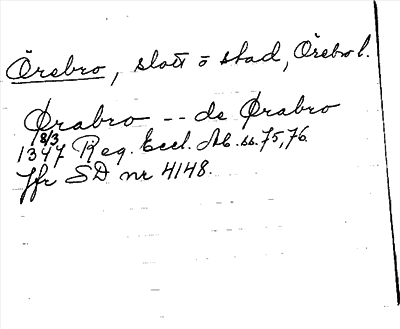 Örebro, slott o stad, Örebro l.
Ørabro -- de Ørabro
18/3
1347 Reg. Eccl. Ab. ss. 75, 76.
Jfr SD nr 4148.